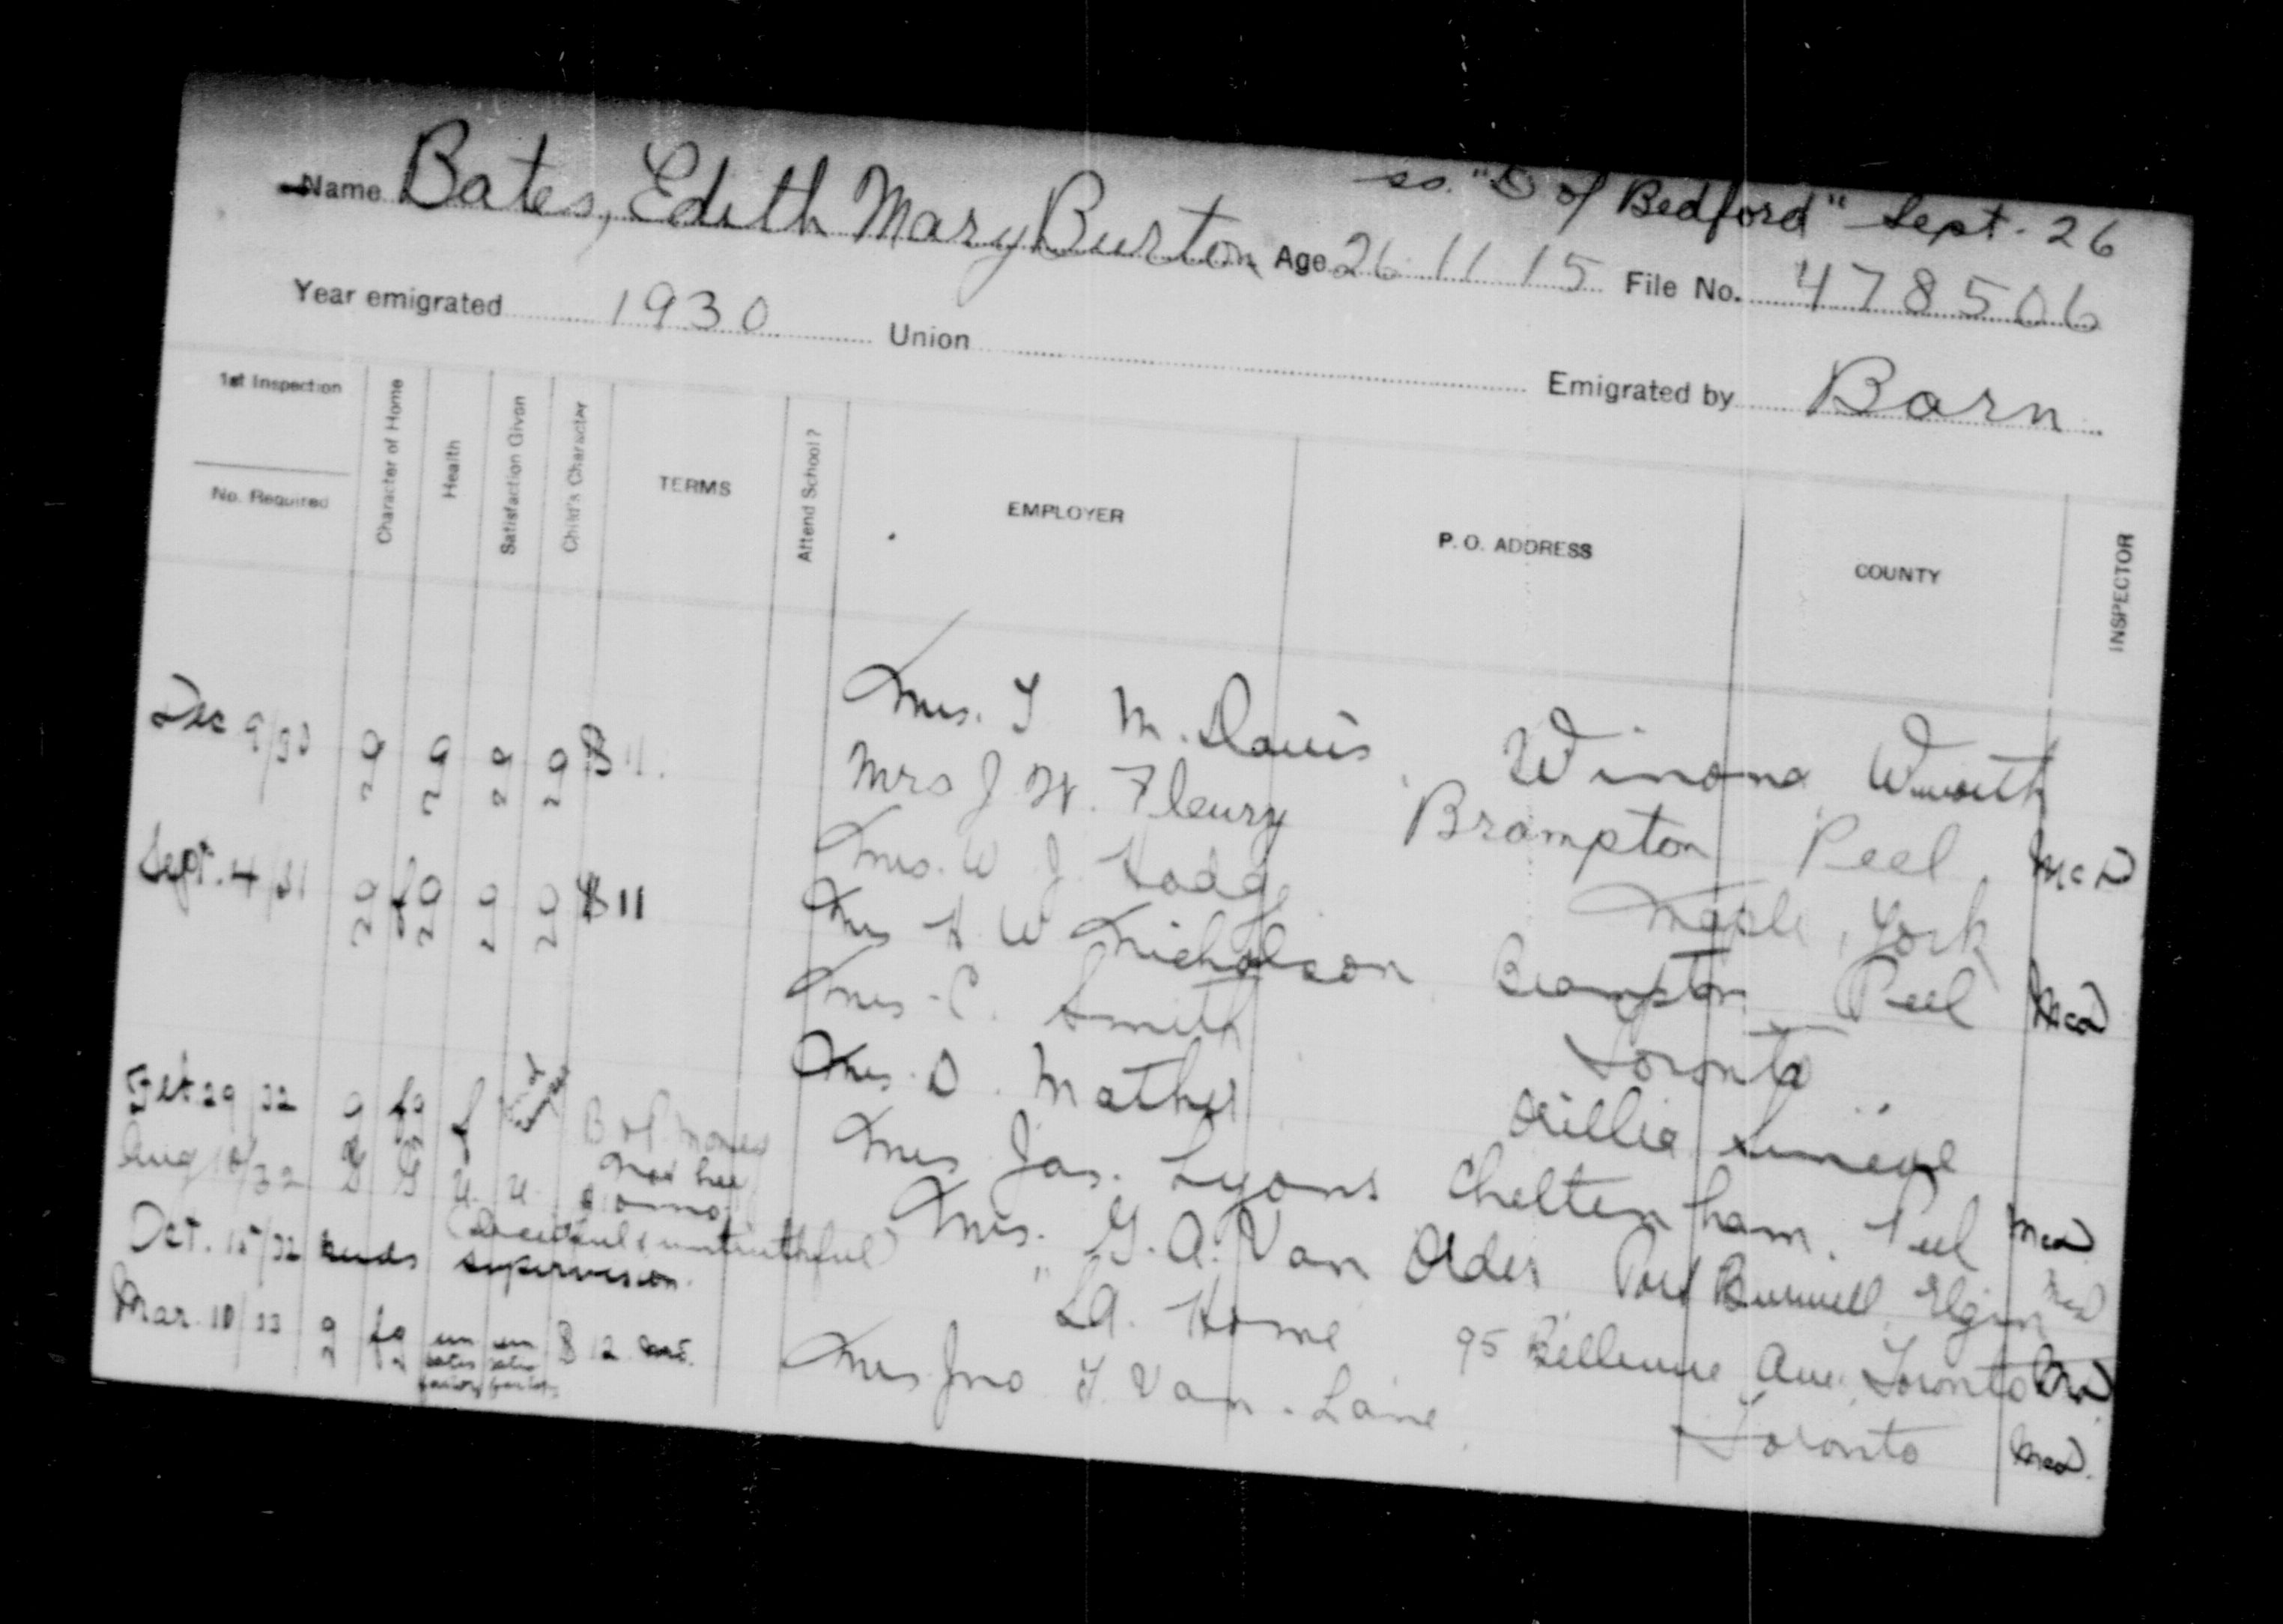 ss. "D of Bedford" Sept. 26
Name Bates, Edith Mary Burton Age 26 11 15 File No. 478506
Year emigrated 1930 Union Emigrated by Barn
1st Inspection
No. Required
Character of Home
Health
Satisfaction Given
Child's Character
TERMS
Attend School?
EMPLOYER
P. O. ADDRESS
COUNTY
INSPECTOR
Mrs. T M. Davis Winona Wworth
Dec 9/30 g g g g $11. Mrs J. W. Fleury Brampton Peel McD
Mrs. W. J. Hodge Maple, York
Sept. 4/31 g fg g g $11 Mrs H W Nicholson Brampton Peel McD
Mrs. C. Smith Toronto
Mrs. D. Mather Orillia Simcoe
Feb 29/32 g fg f B of money Mrs Jas. Lyons Cheltenham. Peel McD
Aug 18/32 G G U. U. Mrs. G. A. Van Order Port Burwell Elgin McD
Oct. 15/32 needs supervision. (Deceitful & untruthful) " La. Home 95 Bellevue Ave. Toronto McD
Mar. 10/33 g fg un satis factory un satis factory $12 Mrs Jno T. Van-Lane Toronto McD.